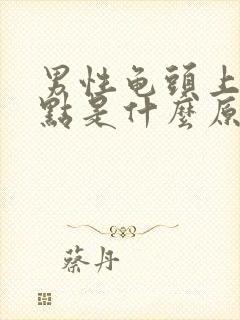 男性龟頭上
點是什麼原
蔡丹